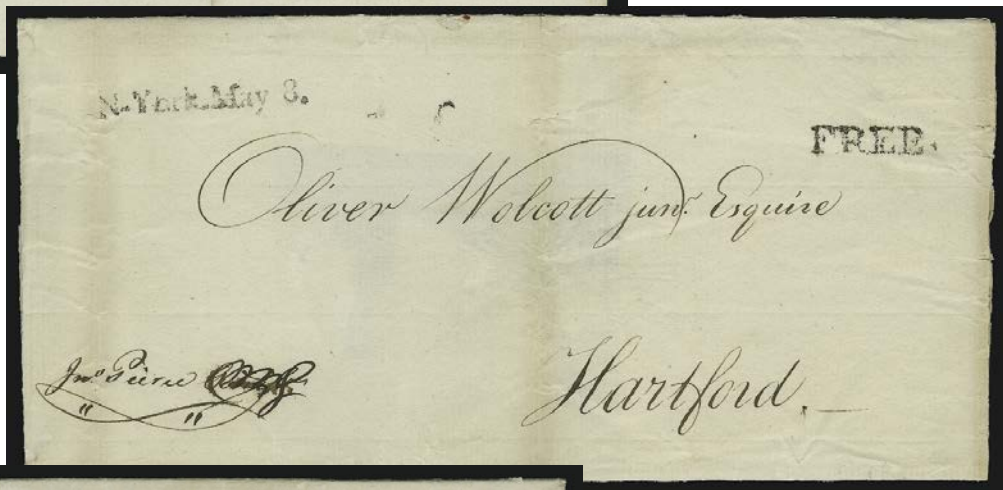 N-York.May 8.
FREE.
Oliver Wolcott junr. Esquire
Hartford.
Jno Pierce